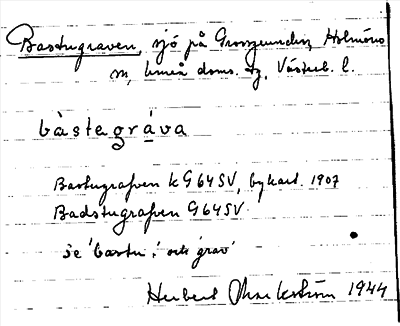 Bastugraven, sjö på Grossgrundet, Holmöns
sn, Umeå doms. tg, Västerb. l.
bàstegráva
Bastugrafven k G64SV, bykart. 1907
Badstugrafven G64SV.
Se 'bastu', och 'grav'
Herbert Markström 1944